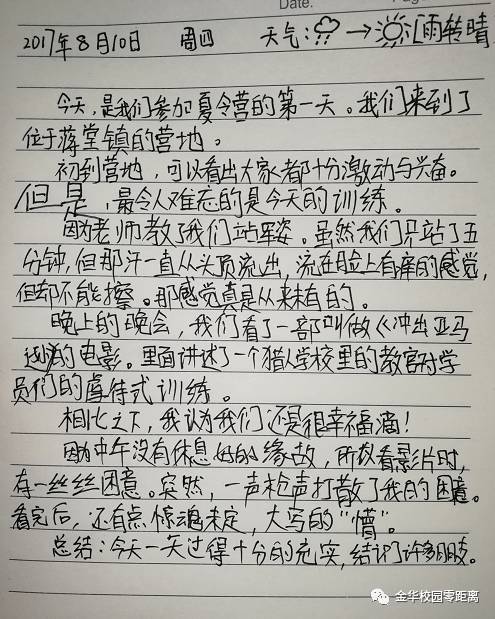 Date:
2017年8月10日 周四 天气: → [雨转晴
今天,是我们参加夏令营的第一天。我们来到了
位于蒋堂镇的营地。
初到营地,可以看出大家都十分激动与兴奋。
但是,最令人难忘的是今天的训练。
因为老师教了我们站军姿。虽然我们只站了五
分钟,但那汗一直从头顶流出,流在脸上有痒的感觉,
但却不能擦。那感觉真是从来未有的。
晚上的晚会,我们看了一部叫做《冲出亚马
逊》的电影。里面讲述了一个猎人学校里的教官对学
员们的虐待式训练。
相比之下,我认为我们还是很幸福滴!
因为中午没有休息好的缘故,所以看影片时,
有一丝丝困意。突然,一声枪声打散了我的困意。
看完后,还有点惊魂未定,大写的“懵”。
总结:今天一天过得十分的充实,结识了许多朋友。
金华校园零距离